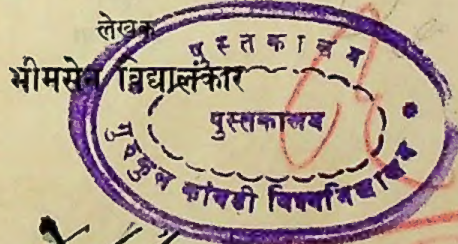 लेखक
भीमसेन विद्यालंकार
पुस्तकालय
पुस्तकालय
गुरुकुल कांगड़ी विश्वविद्यालय